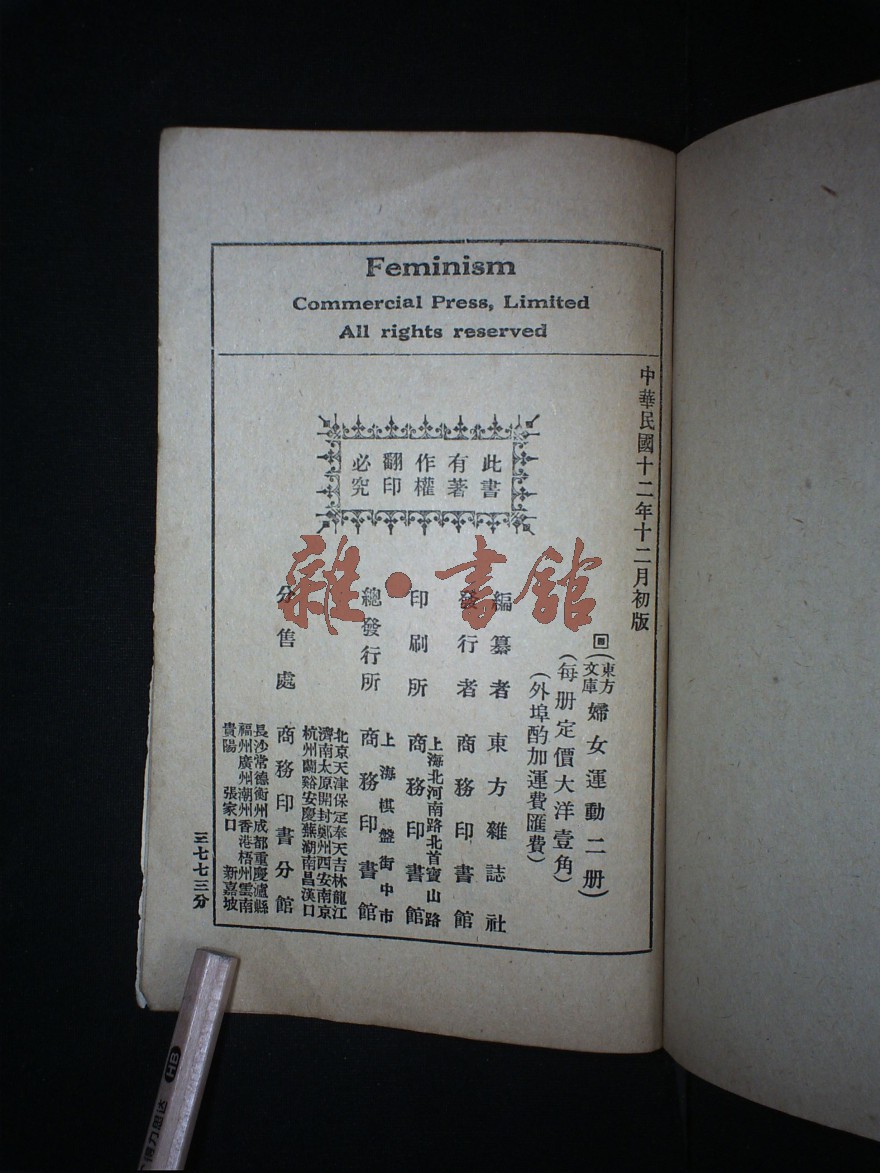 Feminism
Commercial Press, Limited
All rights reserved
中華民國十二年十二月初版
此書
有著
作權
翻印
必究
回(東方文庫)婦女運動二册)
(每册定價大洋壹角)
(外埠酌加運費匯費)
編纂者 東方雜誌社
發行者 商務印書館
印刷所 上海北河南路北首寶山路 商務印書館
總發行所 上海棋盤街中市 商務印書館
分售處 商務印書分館
北京天津保定奉天吉林龍江
濟南太原開封鄭州西安南京
杭州蘭谿安慶蕪湖南昌漢口
長沙常德衡州成都重慶瀘縣
福州廣州潮州香港梧州雲南
貴陽 張家口 新嘉坡
三七七三分
雜·書館
HB